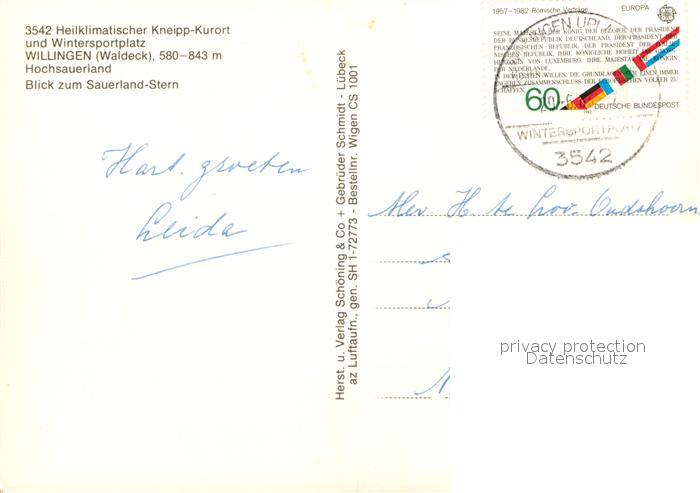 3542 Heilklimatischer Kneipp-Kurort
und Wintersportplatz
WILLINGEN (Waldeck), 580–843 m
Hochsauerland
Blick zum Sauerland-Stern
Hart. groeten
Leida
Herst. u. Verlag Schöning & Co + Gebrüder Schmidt - Lübeck
az Luftaufn., gen. SH 1-72773 - Bestellnr. Wigen CS 1001
1957–1982 Römische Verträge EUROPA
SEINE MAJESTÄT DER KÖNIG DER BELGIER, DER PRÄSIDENT
DER BUNDESREPUBLIK DEUTSCHLAND, DER PRÄSIDENT DER
FRANZÖSISCHEN REPUBLIK, DER PRÄSIDENT DER
REPUBLIK, IHRE KÖNIGLICHE HOHEIT DIE
HERZOGIN VON LUXEMBURG, IHRE MAJESTÄT DIE KÖNIGIN
DER NIEDERLANDE,
WILLEN, DIE GRUNDLAGEN FÜR EINEN IMMER
ENGEREN ZUSAMMENSCHLUSS DER VÖLKER ZU
SCHAFFEN
60 DEUTSCHE BUNDESPOST
WINTERSPORTPLATZ
3542
Mev. H. te Lov. Oudshoorn
privacy protection
Datenschutz